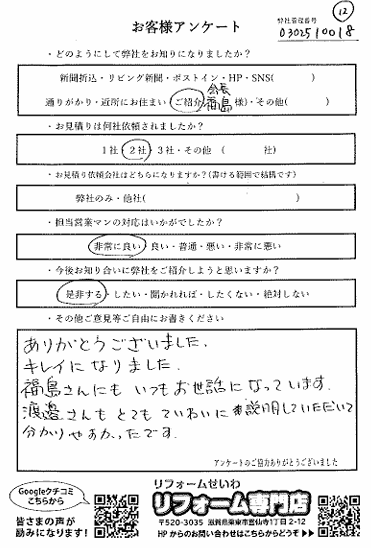 ⑫
お客様アンケート
弊社管理番号
0302510018
・どのようにして弊社をお知りになりましたか？
新聞折込・リビング新聞・ポストイン・HP・SNS(　　　)
会長
通りがかり・近所にお住まい・ご紹介(福島様)・その他(　　　)
・お見積りは何社依頼されましたか？
1社・2社・3社・その他　(　　　社)
・お見積り依頼会社はどちらになりますか？(書ける範囲で結構です)
弊社のみ・他社(　　　)
・担当営業マンの対応はいかがでしたか？
非常に良い・良い・普通・悪い・非常に悪い
・今後お知り合いに弊社をご紹介しようと思いますか？
是非する・したい・聞かれれば・したくない・絶対しない
・その他ご意見等ご自由にお書きください
ありがとうございました.
キレイになりました.
福島さんにもいつもお世話になっています.
渡邊さんもとてもていねいに説明していただいて
分かりやすかったです.
アンケートのご協力ありがとうございました
Googleクチコミ
こちらから
皆さまの声が
励みになります!
リフォームせいわ
リフォーム専門店
〒520-3035 滋賀県栗東市霊仙寺1丁目2-12
HPからのお問い合わせはこちらからどうぞ▶▶